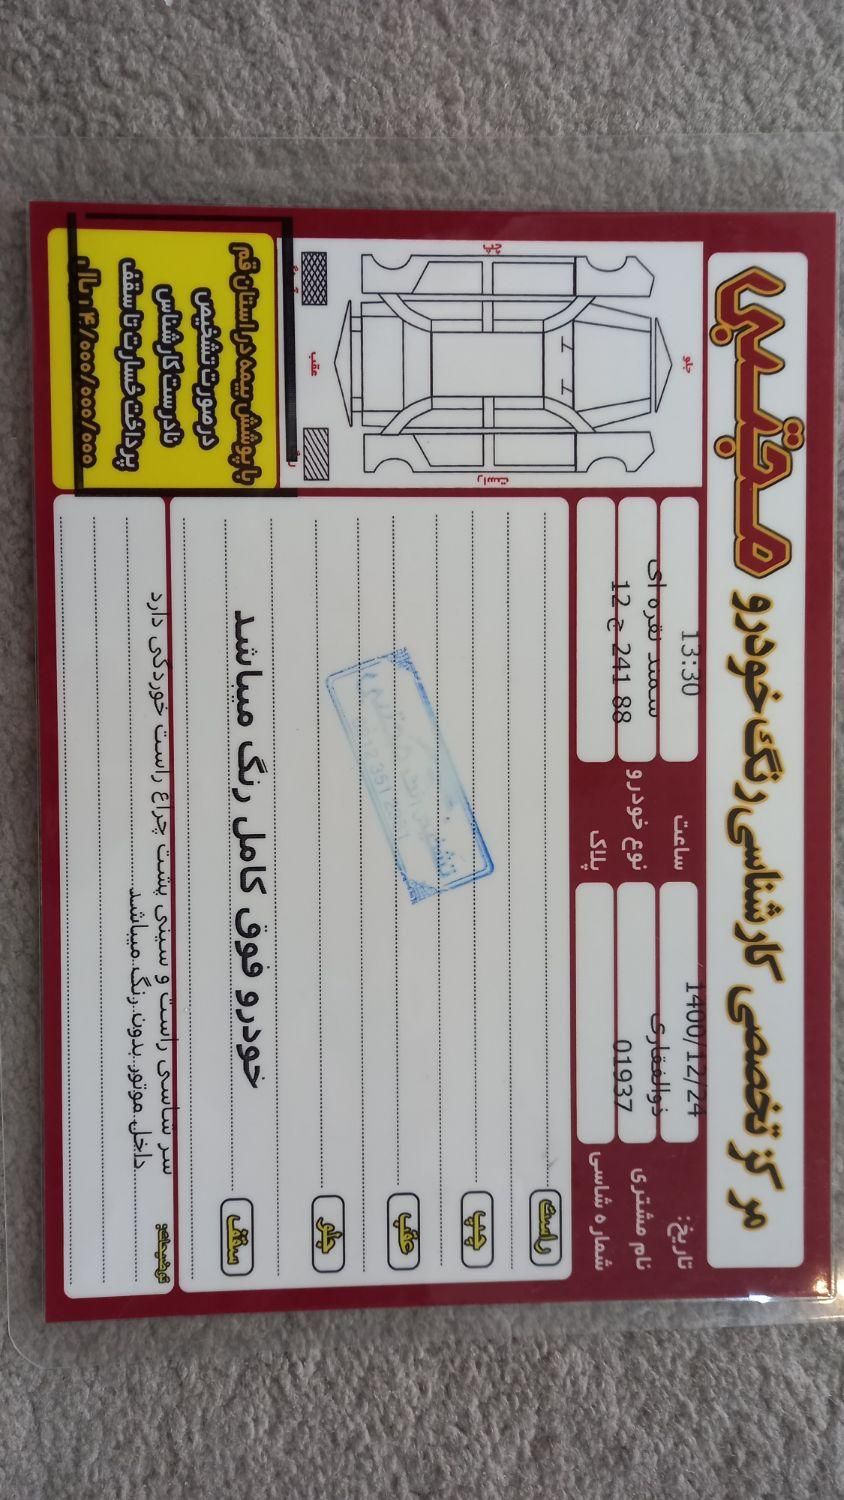 مرکز تخصصی کارشناسی رنگ خودرو مجتبی
تاریخ: 1400/12/24
ساعت 13:30
نام مشتری ذوالفقاری
نوع خودرو سمند نقره ای
شماره شاسی 01937
پلاک 12 ج 241 88
جلو
عقب
چپ
راست
راست
چپ
عقب
جلو
سقف
خودرو فوق کامل رنگ میباشد
توضیحات
سر شاسی راست و سینی پشت چراغ راست خوردگی دارد
داخل موتور بدون رنگ میباشد
با پوشش بیمه در استان قم
در صورت تشخیص
نادرست کارشناس
پرداخت خسارت تا سقف